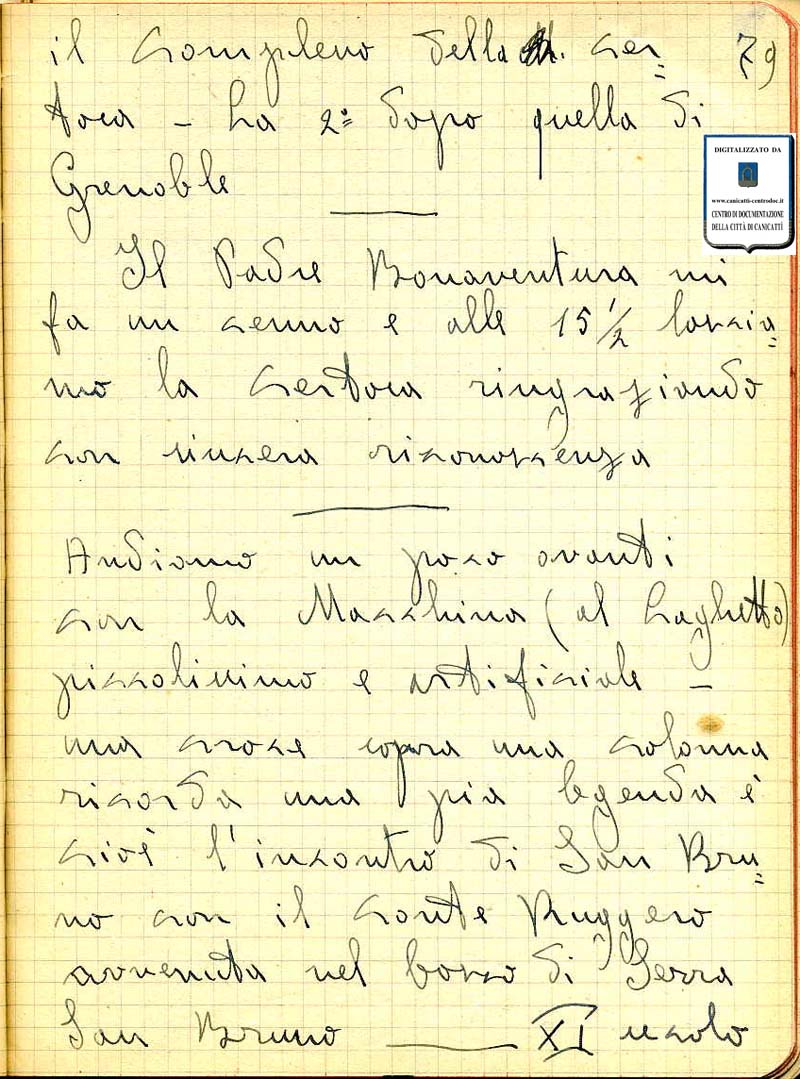 79
il complesso della cer=
tosa - La 2ª dopo quella di
Grenoble
Il Padre Bonaventura mi
fa un cenno e alle 15 1/2 lascia=
mo la certosa ringraziando
con sincera riconoscenza
Andiamo un poco avanti
con la Macchina (al Laghetto)
piccolissimo e artificiale -
una croce sopra una colonna
ricorda una pia legenda è
cioè l'incontro di San Bru=
no con il conte Ruggero
avvenuta nel bosco di Serra
San Bruno — XI secolo
DIGITALIZZATO DA
www.canicatti-centrodoc.it
CENTRO DI DOCUMENTAZIONE
DELLA CITTÀ DI CANICATTÌ